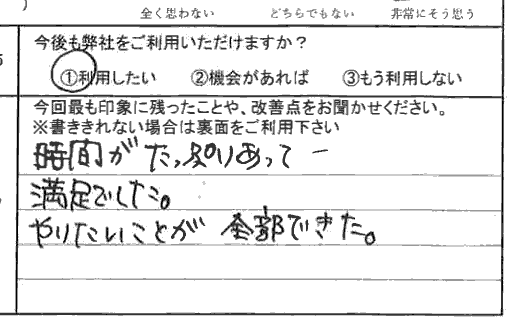 全く思わない　どちらでもない　非常にそう思う
今後も弊社をご利用いただけますか？
①利用したい　②機会があれば　③もう利用しない
今回最も印象に残ったことや、改善点をお聞かせください。
※書ききれない場合は裏面をご利用下さい
時間がたっぷりあって
満足でした。
やりたいことが全部できた。